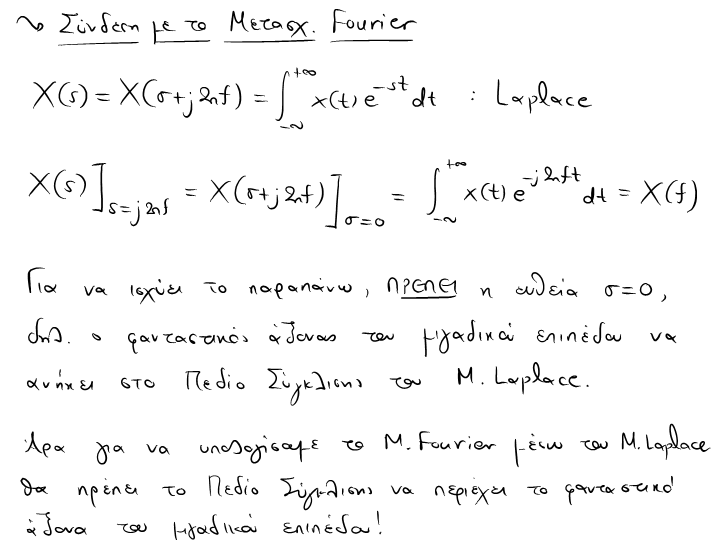 ~> Σύνδεση με το Μετασχ. Fourier
X(s) = X(σ+j2πf) = ∫_{-∞}^{+∞} x(t) e^{-st} dt : Laplace
X(s)]_{s=j2πf} = X(σ+j2πf)]_{σ=0} = ∫_{-∞}^{+∞} x(t) e^{-j2πft} dt = X(f)
Για να ισχύει το παραπάνω, ΠΡΕΠΕΙ η ευθεία σ=0,
δηλ. ο φανταστικός άξονας του μιγαδικού επιπέδου να
ανήκει στο Πεδίο Σύγκλισης του Μ. Laplace.
Άρα για να υπολογίσουμε το Μ. Fourier μέσω του Μ. Laplace
θα πρέπει το Πεδίο Σύγκλισης να περιέχει το φανταστικό
άξονα του μιγαδικού επιπέδου!